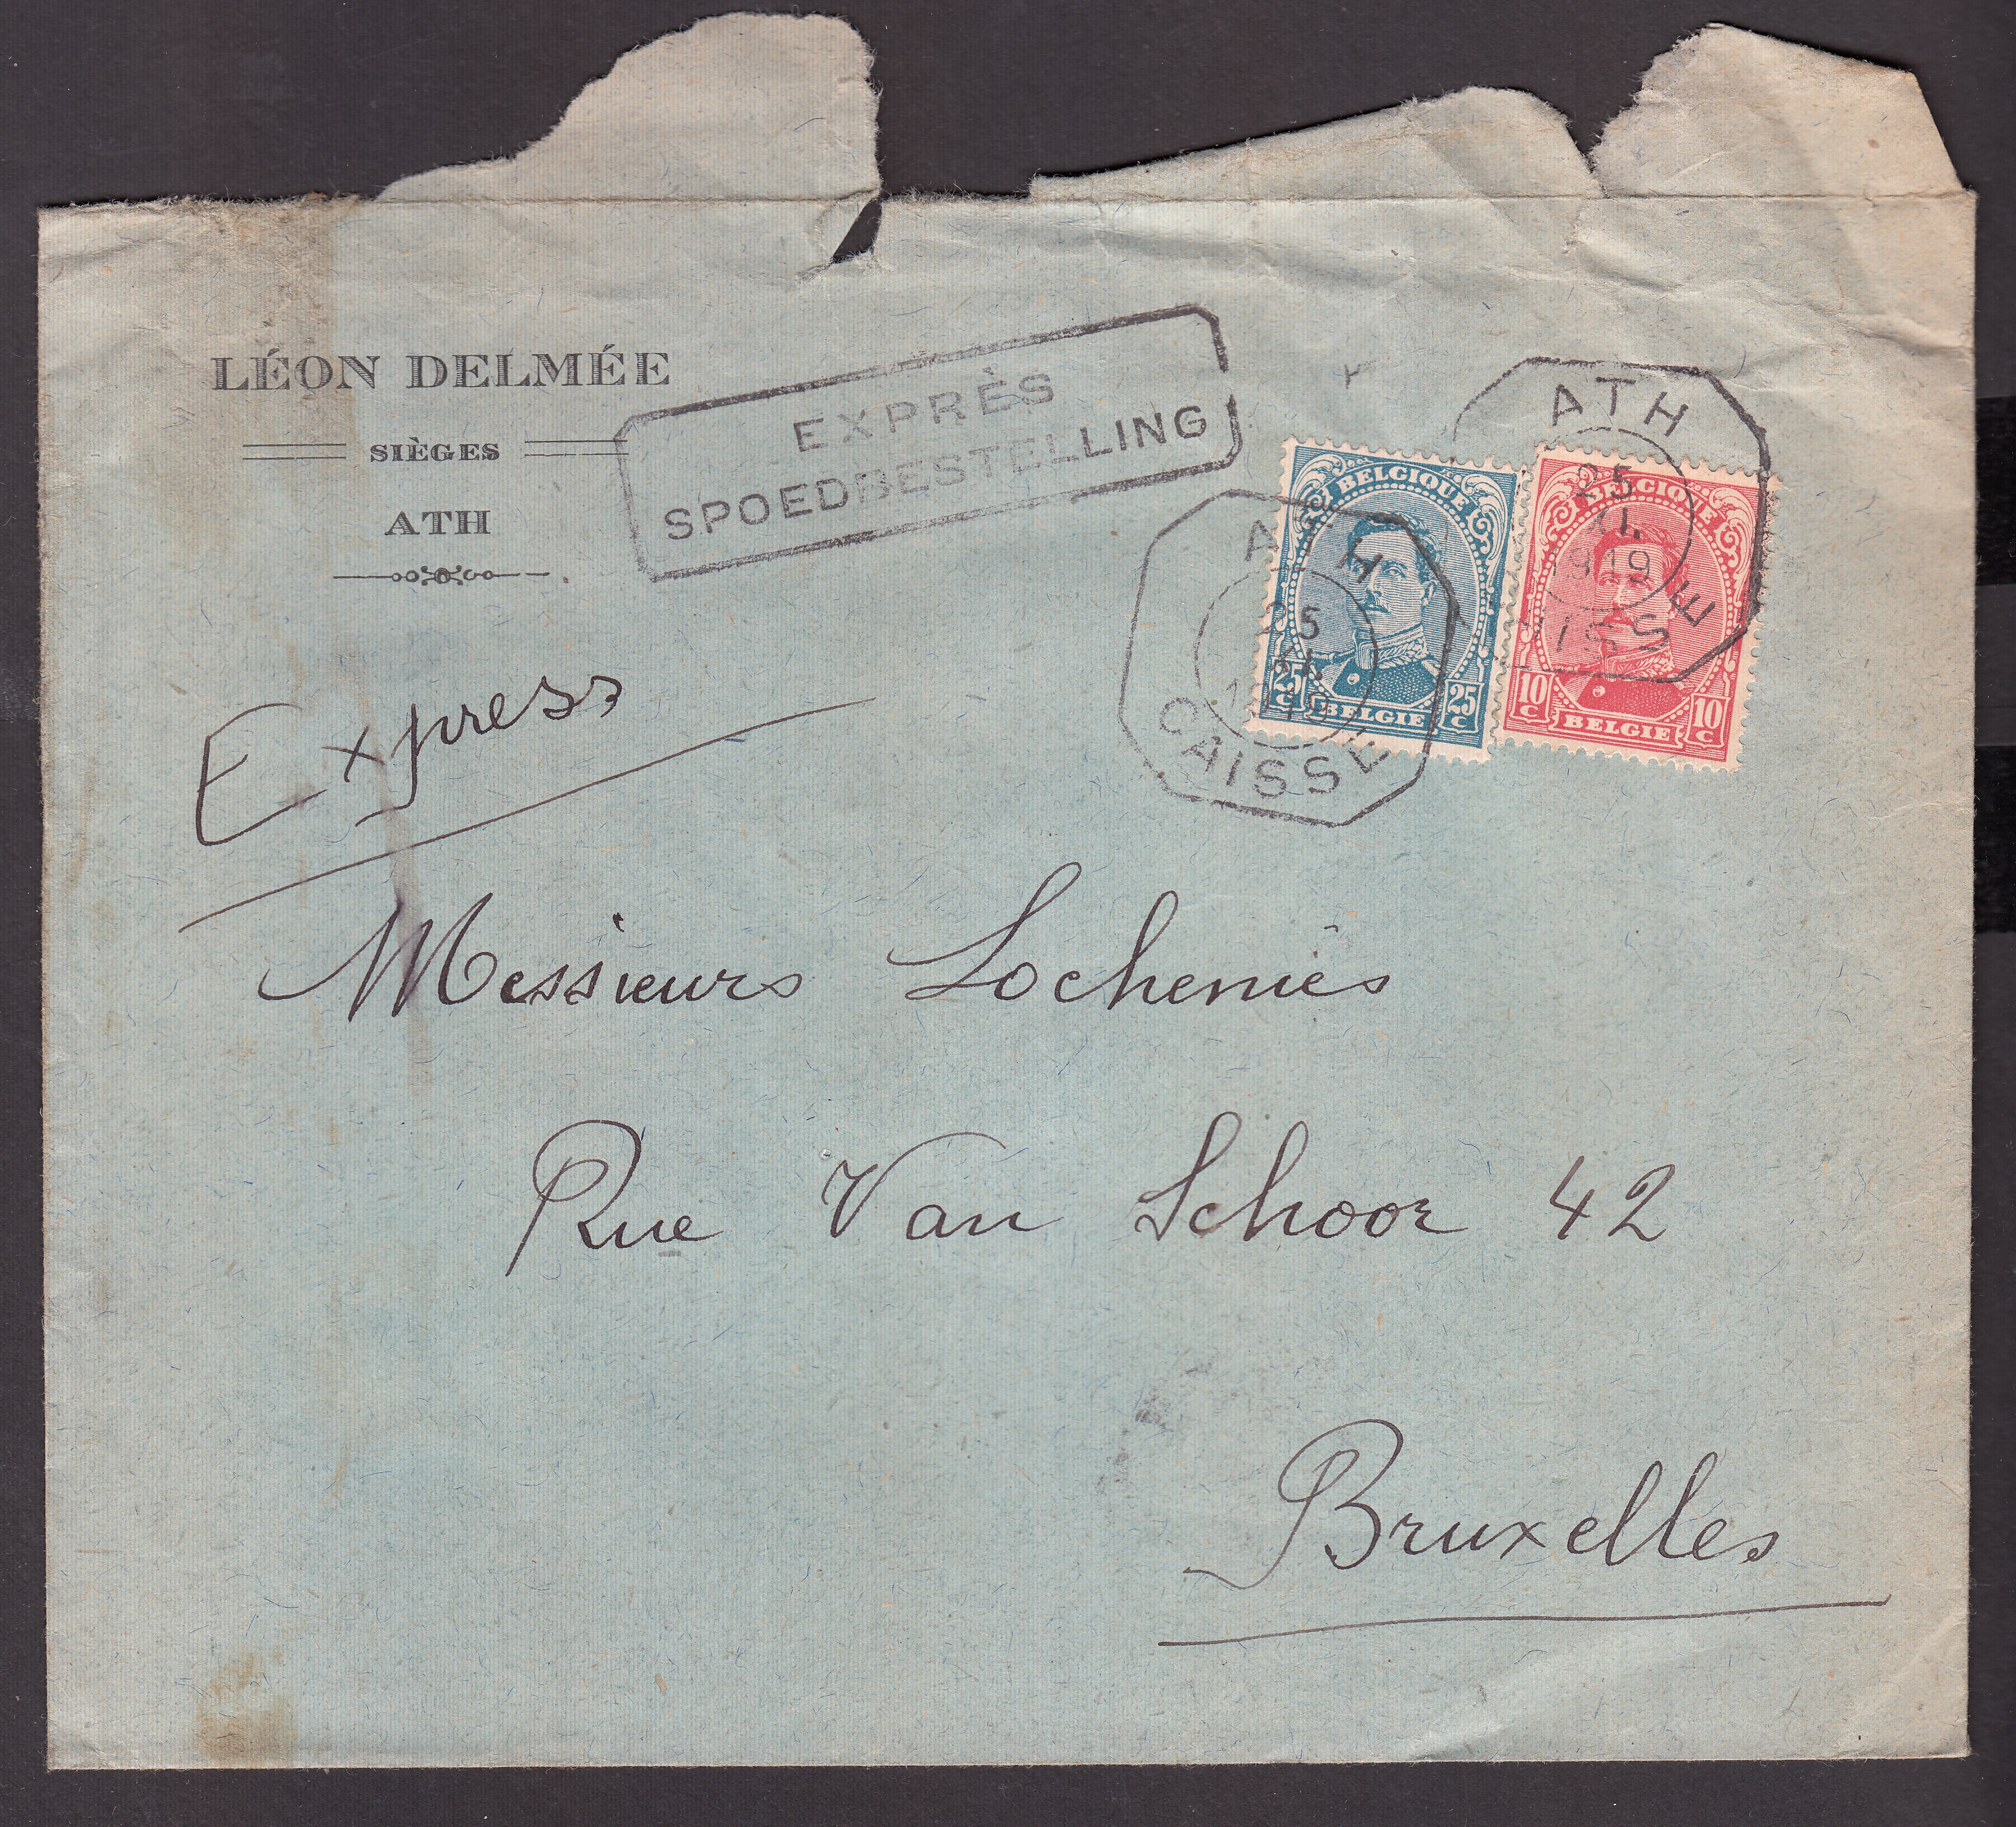 LÉON DELMÉE
SIÈGES
ATH
EXPRÈS
SPOEDBESTELLING
ATH
25
1919
CAISSE
ATH
25
CAISSE
BELGIQUE
25 C BELGIE 25 C
BELGIQUE
10 C BELGIE 10 C
Express
Messieurs Lochenies
Rue Van Schoor 42
Bruxelles